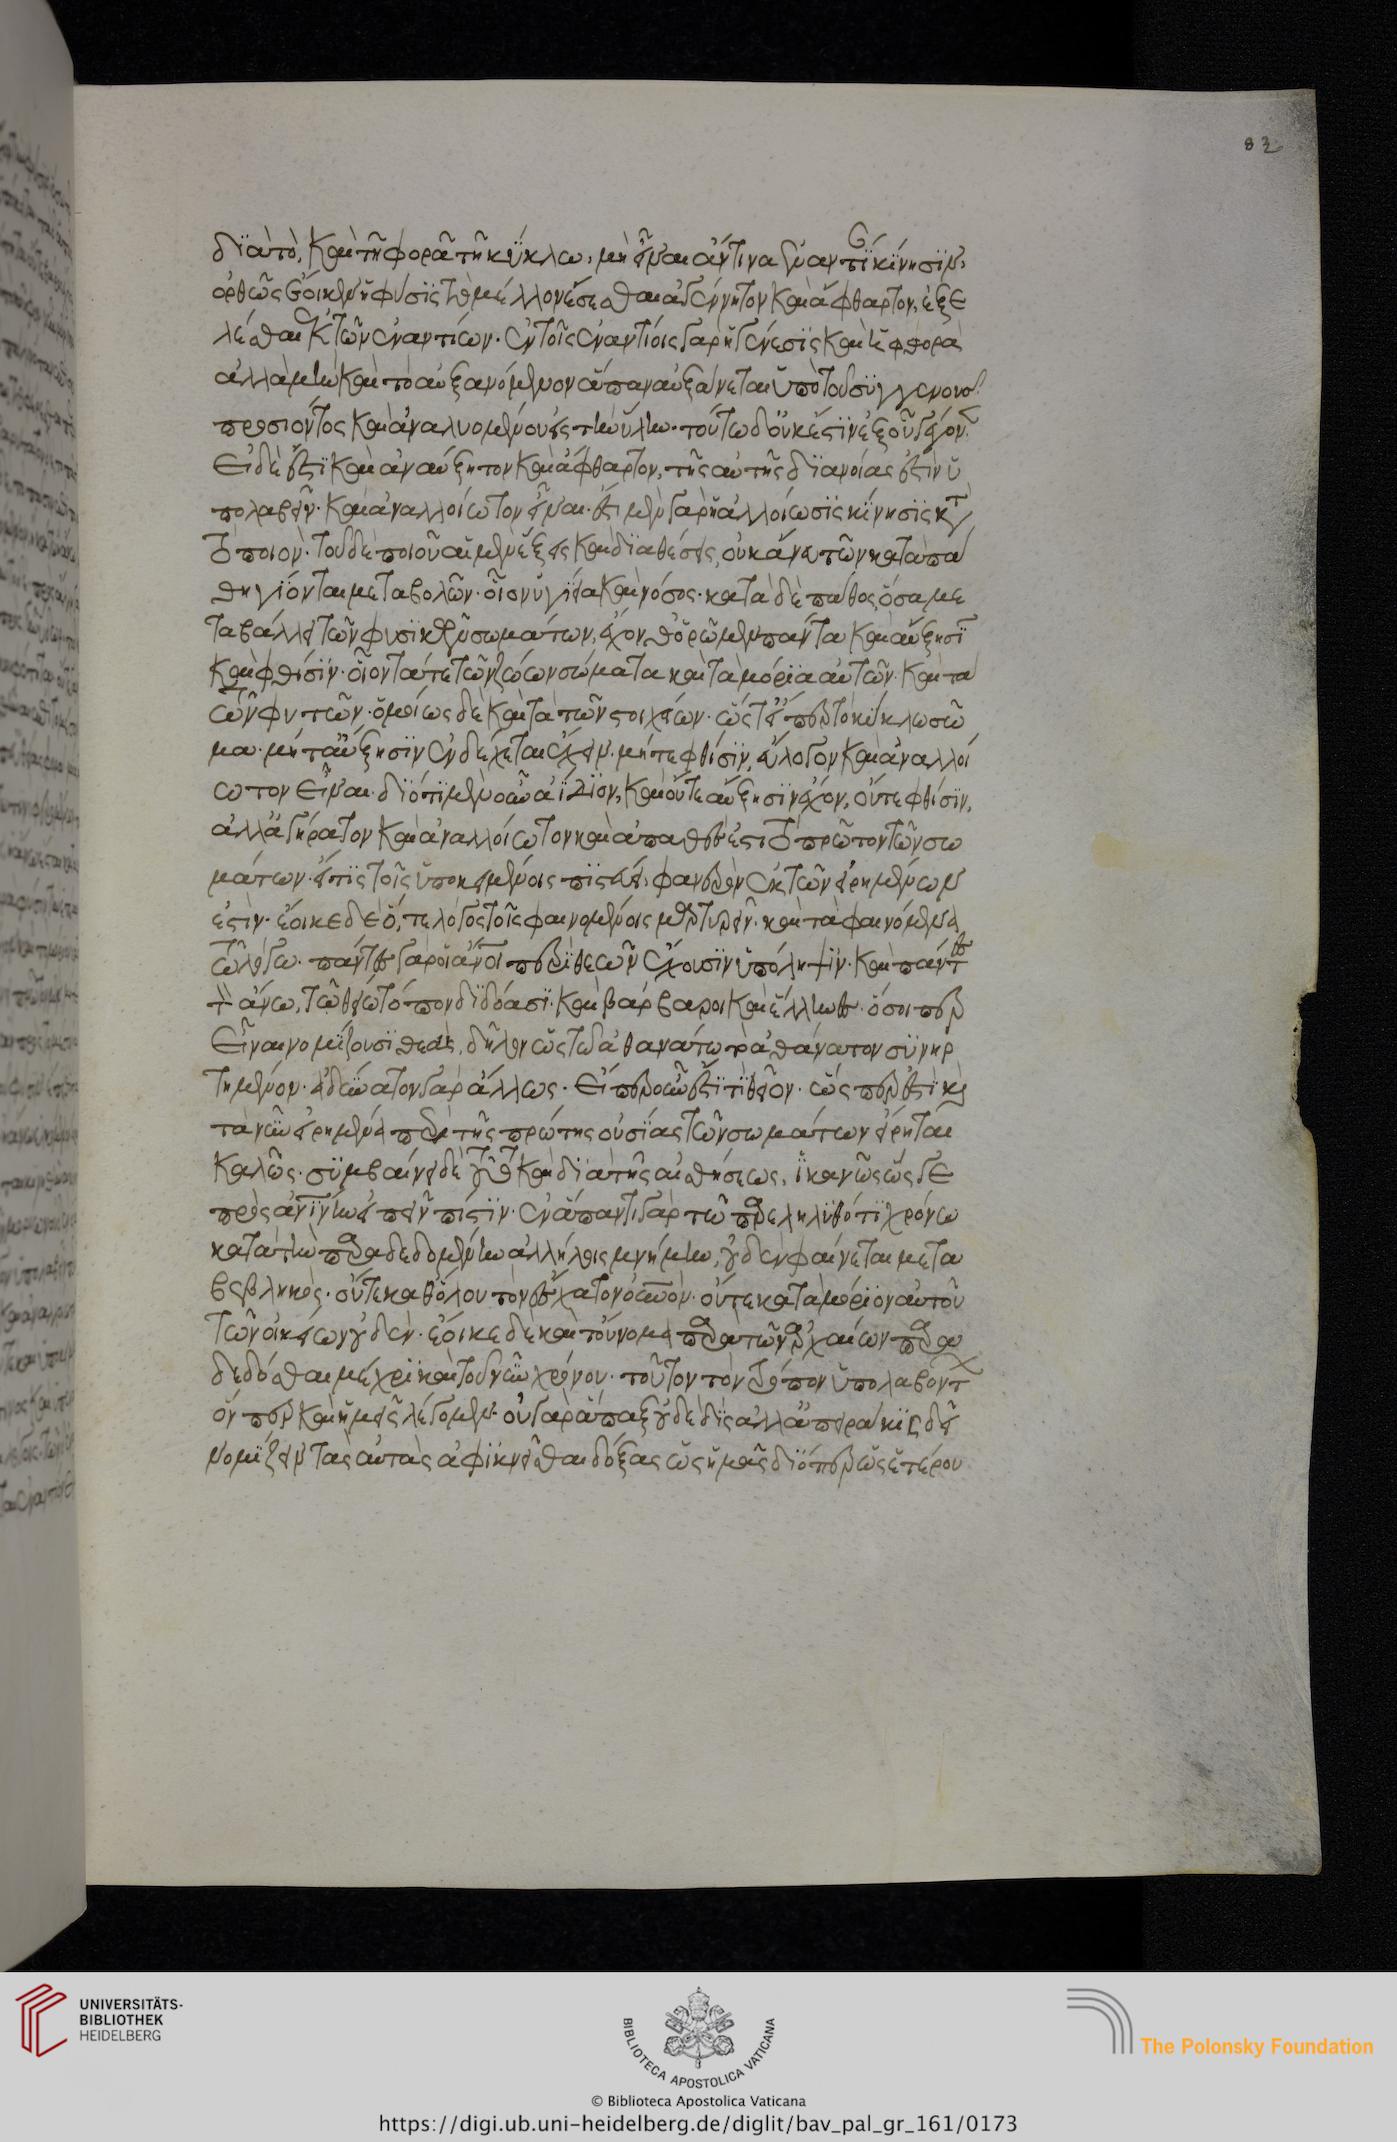 διὰ τὸ, καὶ τῇ φορᾷ τῇ κύκλω, μὴ εἶναι ἄν τινα ἐναντί κίνησιν,
ὀρθῶς ἔοικεν ἡ φύσις τὸ μέλλον ἔσεσθαι ἀγέννητον καὶ ἄφθαρτον, ἐξε
λέσθαι ἐκ τῶν ἐναντίων· ἐν τοῖς ἐναντίοις γὰρ ἡ γένεσις καὶ ἡ φθορά
ἀλλὰ μὴν καὶ τὸ αὐξανόμενον ἅπαν αὐξάνεται ὑπὸ τοῦ συγγενοῦς
προσιόντος καὶ ἀναλυομένου εἰς τὴν ὕλην· τούτω δ' οὐκ ἔστιν ἐξ οὗ γέγον
Εἰ δὲ ἐστὶ καὶ ἀναύξητον καὶ ἄφθαρτον, τῆς αὐτῆς διανοίας ἐστὶν ὑ
πολαβεῖν· καὶ ἀναλλοίωτον εἶναι· ἔστι μὲν γὰρ ἡ ἀλλοίωσις κίνησις κατὰ
τὸ ποιόν· τοῦ δὲ ποιοῦ αἱ μὲν ἕξεις καὶ διαθέσεις, οὐκ ἄνευ τῶν κατὰ πά
θη γίνονται μεταβολῶν· οἷον ὑγίεια καὶ νόσος· κατὰ δὲ πάθος, ὅσα με
ταβάλλει τῶν φυσικῶν σωμάτων, ἔχονθ' ὁρῶμεν πάντα καὶ αὔξησιν
καὶ φθίσιν· οἷον τά τε τῶν ζώων σώματα καὶ τὰ μόρια αὐτῶν· καὶ τὰ
τῶν φυτῶν· ὁμοίως δὲ καὶ τὰ τῶν στοιχείων· ὥστ' εἴπερ τὸ κύκλω σῶ
μα· μήτ' αὔξησιν ἐνδέχεται ἔχειν· μήτε φθίσιν, εὔλογον καὶ ἀναλλοί
ωτον εἶναι· διότι μὲν οὖν ἀΐδιον, καὶ οὔτε αὔξησιν ἔχον, οὔτε φθίσιν,
ἀλλ' ἀγήρατον καὶ ἀναλλοίωτον καὶ ἀπαθές ἐστι τὸ πρῶτον τῶν σω
μάτων· εἴ τις τοῖς ὑποκειμένοις πιστεύει, φανερὸν ἐκ τῶν εἰρημένων
ἐστίν· ἔοικε δὲ ὅ, τε λόγος τοῖς φαινομένοις μαρτυρεῖν· καὶ τὰ φαινόμενα
τῶ λόγω· πάντες γὰρ οἱ ἄνοι περὶ θεῶν ἔχουσιν ὑπόληψιν· καὶ πάντες
τὸν ἄνω, τῶ θείω τόπον διδόασι· καὶ βάρβαροι καὶ ἕλληνες· ὅσοι περ
Εἶναι νομίζουσι θεοὺς, δῆλον ὥς τῶ ἀθανάτω τὸ ἀθάνατον συνηρ
τημένον· ἀδύνατον γὰρ ἄλλως· Εἴπερ οὖν ἐστί τι θεῖον· ὥσπερ ἐστὶ καὶ
τὰ νῦν εἰρημένα περὶ τῆς πρώτης οὐσίας τῶν σωμάτων εἴρηται
καλῶς· συμβαίνει δὲ τοῦτο καὶ διὰ τῆς αἰσθήσεως, ἱκανῶς ὥς γε
πρὸς ἀνίνην εἰπεῖν πίστιν· ἐν ἅπαντι γὰρ τῶ παρεληλυθότι χρόνω
κατὰ τὴν παραδεδομένην ἀλλήλοις μνήμην, οὐδὲν φαίνεται μετα
βεβληκός· οὔτε καθ' ὅλον τὸν ἔσχατον οὐνόν· οὔτε κατὰ μόριον αὐτοῦ
τῶν οἰκείων οὐδέν· ἔοικε δὲ καὶ τοὔνομα παρὰ τῶν ἀρχαίων παρα
δεδόσθαι μέχρι καὶ τοῦ νῦν χρόνου· τοῦτον τὸν τρόπον ὑπολαβόντων
ὅν περ καὶ ἡμεῖς λέγομεν· οὐ γὰρ ἅπαξ οὐδὲ δὶς ἀλλ' ἀπειράκις δεῖ
νομίζειν τὰς αὐτὰς ἀφικνεῖσθαι δόξας ὡς ἡμᾶς διόπερ ὡς ἑτέρου
82
UNIVERSITÄTS-
BIBLIOTHEK
HEIDELBERG
BIBLIOTECA APOSTOLICA VATICANA
The Polonsky Foundation
© Biblioteca Apostolica Vaticana
https://digi.ub.uni-heidelberg.de/diglit/bav_pal_gr_161/0173